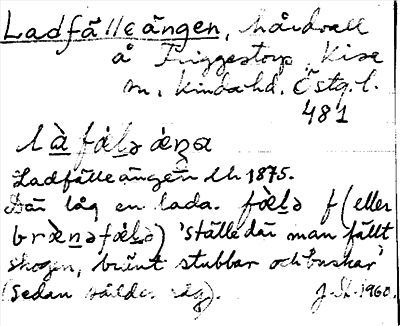 Ladfälleängen, hårdvall
å Friggestorp, Kisa
sn, Kinda hd. Östg. l.
481
là fälə äŋa
Ladfälleängen lk 1875.
Där låg en lada. fälə f (eller
brænəfälə) 'ställe där man fällt
skogen, bränt stubbar och buskar'
(sedan råg). 1960.